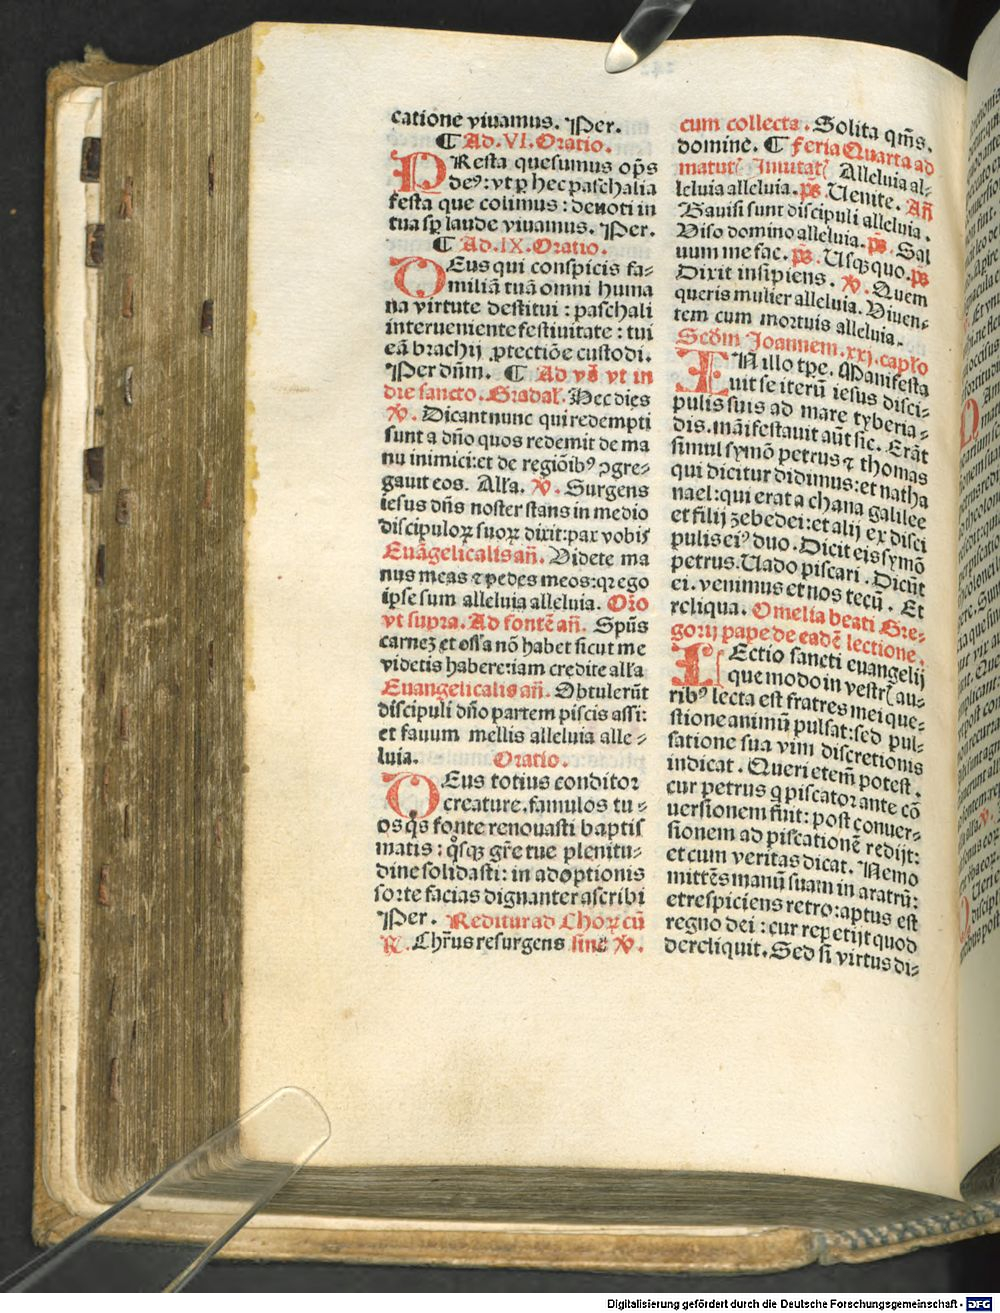 catione viuamus. Per.
¶ Ad. VI. Oratio.
PResta quesumus op̄s
deꝰ: vt ꝑ hec paschalia
festa que colimus: deuoti in
tua sꝑ laude viuamus. Per.
¶ Ad. IX. Oratio.
DEus qui conspicis fa-
miliā tuā omni huma
na virtute destitui: paschali
interueniente festiuitate: tui
eā brachij ꝓtectiōe custodi.
Per dūm. ¶ Ad vs̄ vt in
die sancto. Gradal̄. Hec dies
℣. Dicant nunc qui redempti
sunt a dn̄o quos redemit de ma
nu inimici: et de regiōibꝰ ↄgre-
gauit eos. Alla. ℣. Surgens
iesus dn̄s noster stans in medio
discipuloꝝ suoꝝ dixit: pax vobis
Euāgelicalis an̄. Videte ma
nus meas ⁊ pedes meos: qꝛ ego
ipse sum alleluia alleluia. Oro
vt supra. Ad fontē an̄. Spūs
carneꝫ et ossa nō habet sicut me
videtis habere: iam credite alla
Euangelicalis an̄. Obtulerūt
discipuli dn̄o partem piscis assi:
et fauum mellis alleluia alle-
luia. Oratio.
DEus totius conditor
creature. famulos tu-
os qs̄ fonte renouasti baptis
matis: qsqꝫ gr̄e tue plenitu-
dine solidasti: in adoptionis
sorte facias dignanter ascribi
Per. Reditur ad Choꝝ cū
℟. Chr̄us resurgens sine ℣.
cum collecta. Solita qm̄s.
domine. ¶ Feria Quarta ad
matut̄ Inuitat̄ Alleluia al-
leluia alleluia. ps̄. Uenite. An̄
Gauisi sunt discipuli alleluia.
Viso domino alleluia. ps̄. Sal
uum me fac. ps̄. Usqꝫquo. ps̄
Dixit insipiens. ℣. Quem
queris mulier alleluia. Viuen-
tem cum mortuis alleluia.
Scdm̄ Joannem. xxj. caplo
IN illo tpe. Manifesta
uit se iterū iesus disci-
pulis suis ad mare tyberia-
dis. māifestauit aūt sic. Erāt
simul symō petrus ⁊ thomas
qui dicitur didimus: et natha
nael: qui erat a chana galilee
et filij zebedei: et alij ex disci
pulis eiꝰ duo. Dicit eis symō
petrus. Uado piscari. Dicūt
ei. venimus et nos tecū. Et
reliqua. Omelia beati Gre-
gorij pape de eadē lectione.
LEctio sancti euangelij
que modo in vestr̄ au-
ribꝰ lecta est fratres mei que-
stione animū pulsat: sed pul-
satione sua vim discretionis
indicat. Queri etem̄ potest.
cur petrus q piscator ante cō
uersionem fuit: post conuer-
sionem ad piscationē redijt:
et cum veritas dicat. Nemo
mittēs manū suam in aratrū:
et respiciens retro: aptus est
regno dei: cur repetijt quod
dereliquit. Sed si virtus di-
Digitalisierung gefördert durch die Deutsche Forschungsgemeinschaft - DFG